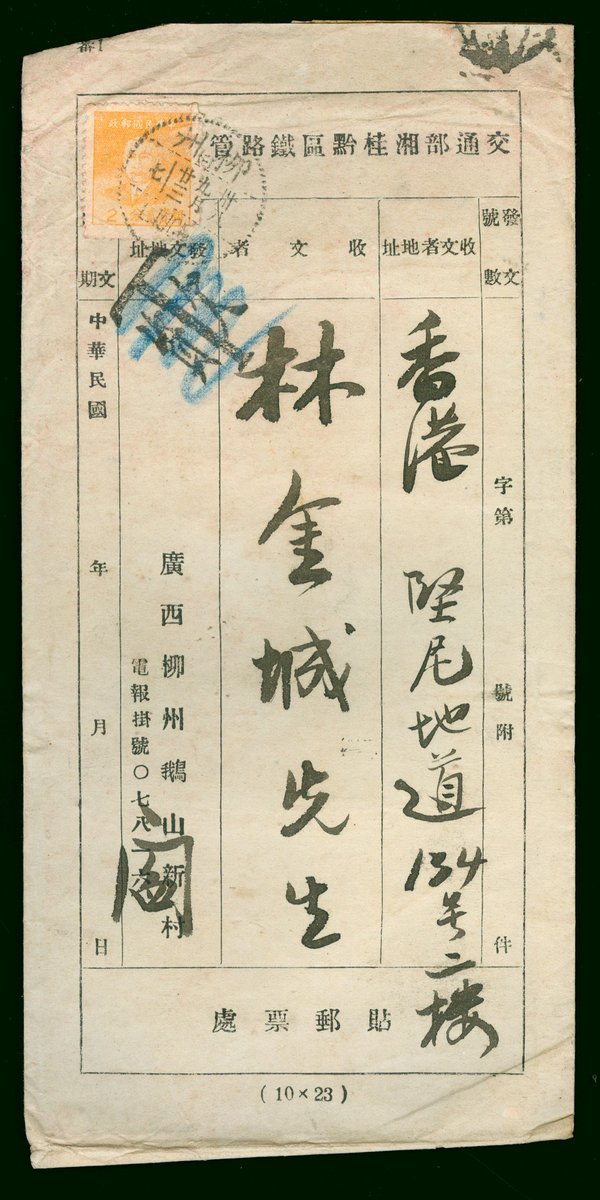 交通部湘桂黔區鐵路管
發文
號數
收文者地址
收文者
發文地址
文期
字第
號附
件
香港 堅尼地道134号二楼
林金城先生
廣西柳州鵝山新村
電報掛號〇七八一六
中華民國
年
月
日
貼郵票處
(10×23)